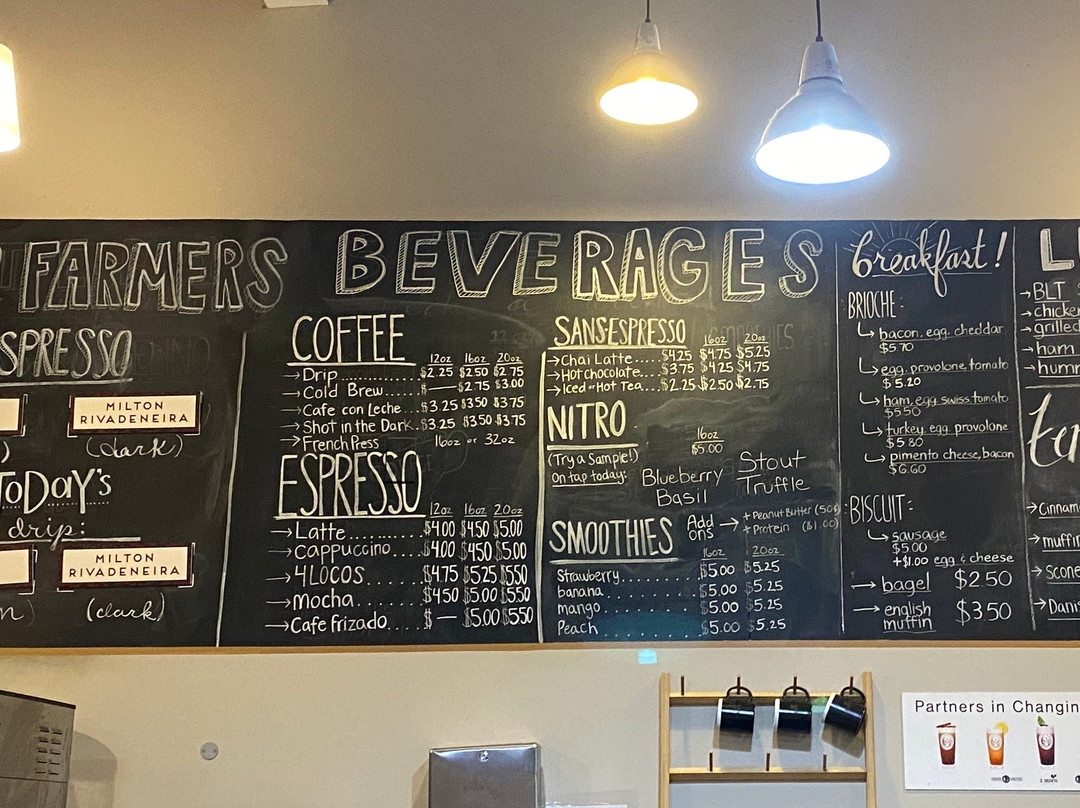 FARMERS
SPRESSO
MILTON
RIVADENEIRA
(dark)
ToDay's
drip:
MILTON
RIVADENEIRA
(dark)
BEVERAGES
COFFEE
12oz 16oz 20oz
→ Drip ............ $2.25 $2.50 $2.75
→ Cold Brew...... $— $2.75 $3.00
→ Cafe con Leche...$3.25 $3.50 $3.75
→ Shot in the Dark..$3.25 $3.50 $3.75
→ French Press 16oz or 32oz
ESPRESSO
12oz 16oz 20oz
→ Latte ......... $4.00 $4.50 $5.00
→ Cappuccino.... $4.00 $4.50 $5.00
→ 4LOCOS....... $4.75 $5.25 $550
→ Mocha........ $4.50 $5.00 $550
→ Cafe frizado.... $ — $5.00 $550
SANSESPRESSO
16oz 20oz
→ Chai Latte.....$4.25 $4.75 $5.25
→ Hot chocolate....$3.75 $4.25 $4.75
→ Iced or Hot Tea...$2.25 $2.50 $2.75
NITRO
16oz
$5.00
(Try a Sample!)
on tap today:
Blueberry
Basil
Stout
Truffle
SMOOTHIES
Add
ons →
+ Peanut Butter (50¢)
+ Protein ($1.00)
16oz 20oz
Strawberry.......... $5.00 $5.25
banana............ $5.00 $5.25
mango............ $5.00 $5.25
Peach ............ $5.00 $5.25
breakfast!
BRIOCHE:
bacon. egg. cheddar
$5.70
egg. provolone, tomato
$5.20
ham, egg swiss, tomato
$5.50
turkey, egg, provolone
$5.80
pimento cheese, bacon
$6.60
BISCUIT:
sausage
$5.00
+$1.00 egg & cheese
→ bagel $2.50
→ english
muffin $3.50
→ BLT
→ chicken
→ grilled
→ ham
→ humm
→ Cinnam
→ muffin
→ Scone
→ Danis
Partners in Changin